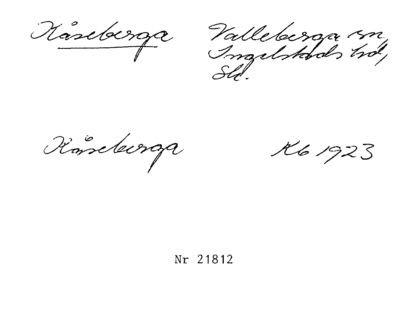 Kåseberga Valleberga sn,
Ingelstads hd,
Sk.
Kåseberga Kb 1923
Nr 21812